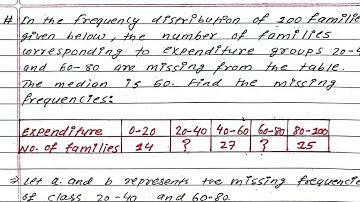 # In the frequency distribution of 100 families
given below, the number of families
corresponding to expenditure groups 20-4
and 60-80 are missing from the table.
The median is 60. Find the missing
frequencies:
Expenditure 0-20 20-40 40-60 60-80 80-100
No. of families 14 ? 27 ? 15
⇒ Let a and b represents the missing frequencie
of class 20-40 and 60-80.